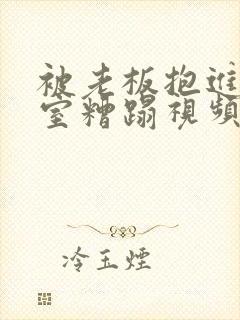 被老板抱進
室糟蹋視頻
冷玉煙